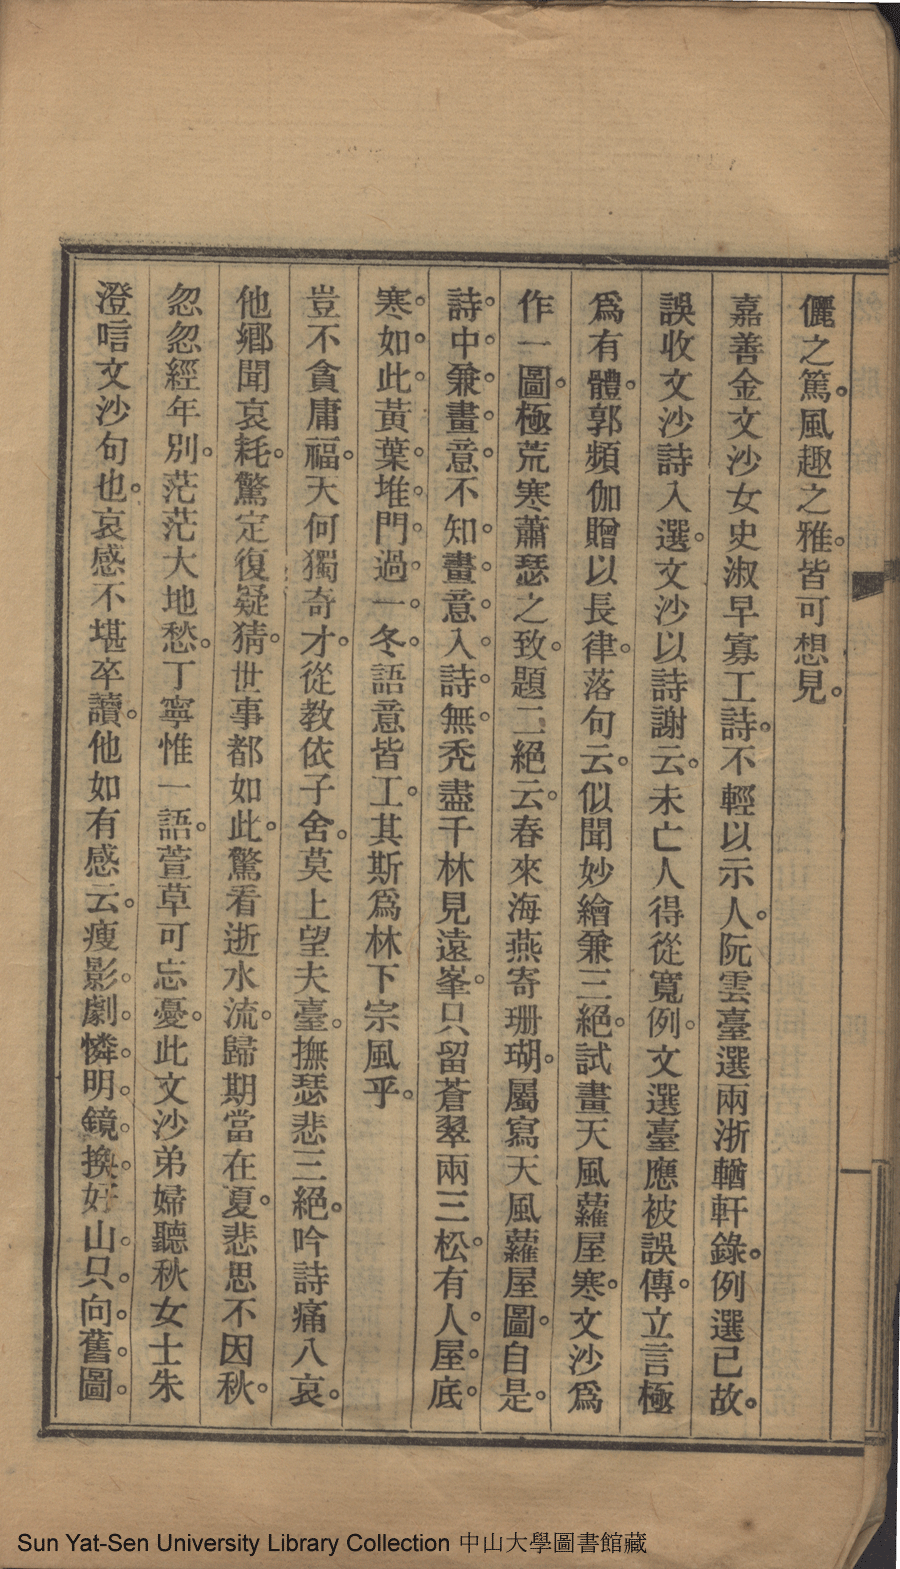 儷之篤。風趣之雅。皆可想見。
嘉善金文沙女史淑早寡工詩。不輕以示人。阮雲臺選兩浙輶軒錄。例選已故。
誤收文沙詩入選。文沙以詩謝云。未亡人得從寬例。文選臺應被誤傳。立言極
爲有體。郭頻伽贈以長律。落句云。似聞妙繪兼三絕。試畫天風蘿屋寒。文沙爲
作一圖。極荒寒蕭瑟之致。題二絕云。春來海燕寄珊瑚。屬寫天風蘿屋圖。自是。
詩。中。兼。畫。意。不知。畫。意。入。詩。無。禿盡千林見遠峯。只留蒼翠兩三松。有人。屋。底。
寒。如。此。黃。葉。堆。門。過。一。冬。語意皆工。其斯爲林下宗風乎。
豈不貪庸福。天何獨奇才。從教依子舍。莫上望夫臺。撫瑟悲三絕。吟詩痛八哀。
他鄉聞哀耗。驚定復疑猜。世事都如此。驚看逝水流。歸期當在夏。悲思不因秋。
忽忽經年別。茫茫大地愁。丁寧惟一語。萱草可忘憂。此文沙弟婦聽秋女士朱
澄唁文沙句也。哀感不堪卒讀。他如有感云。瘦影。劇。憐。明。鏡。換。好山。只。向。舊。圖。
Sun Yat-Sen University Library Collection 中山大學圖書館藏